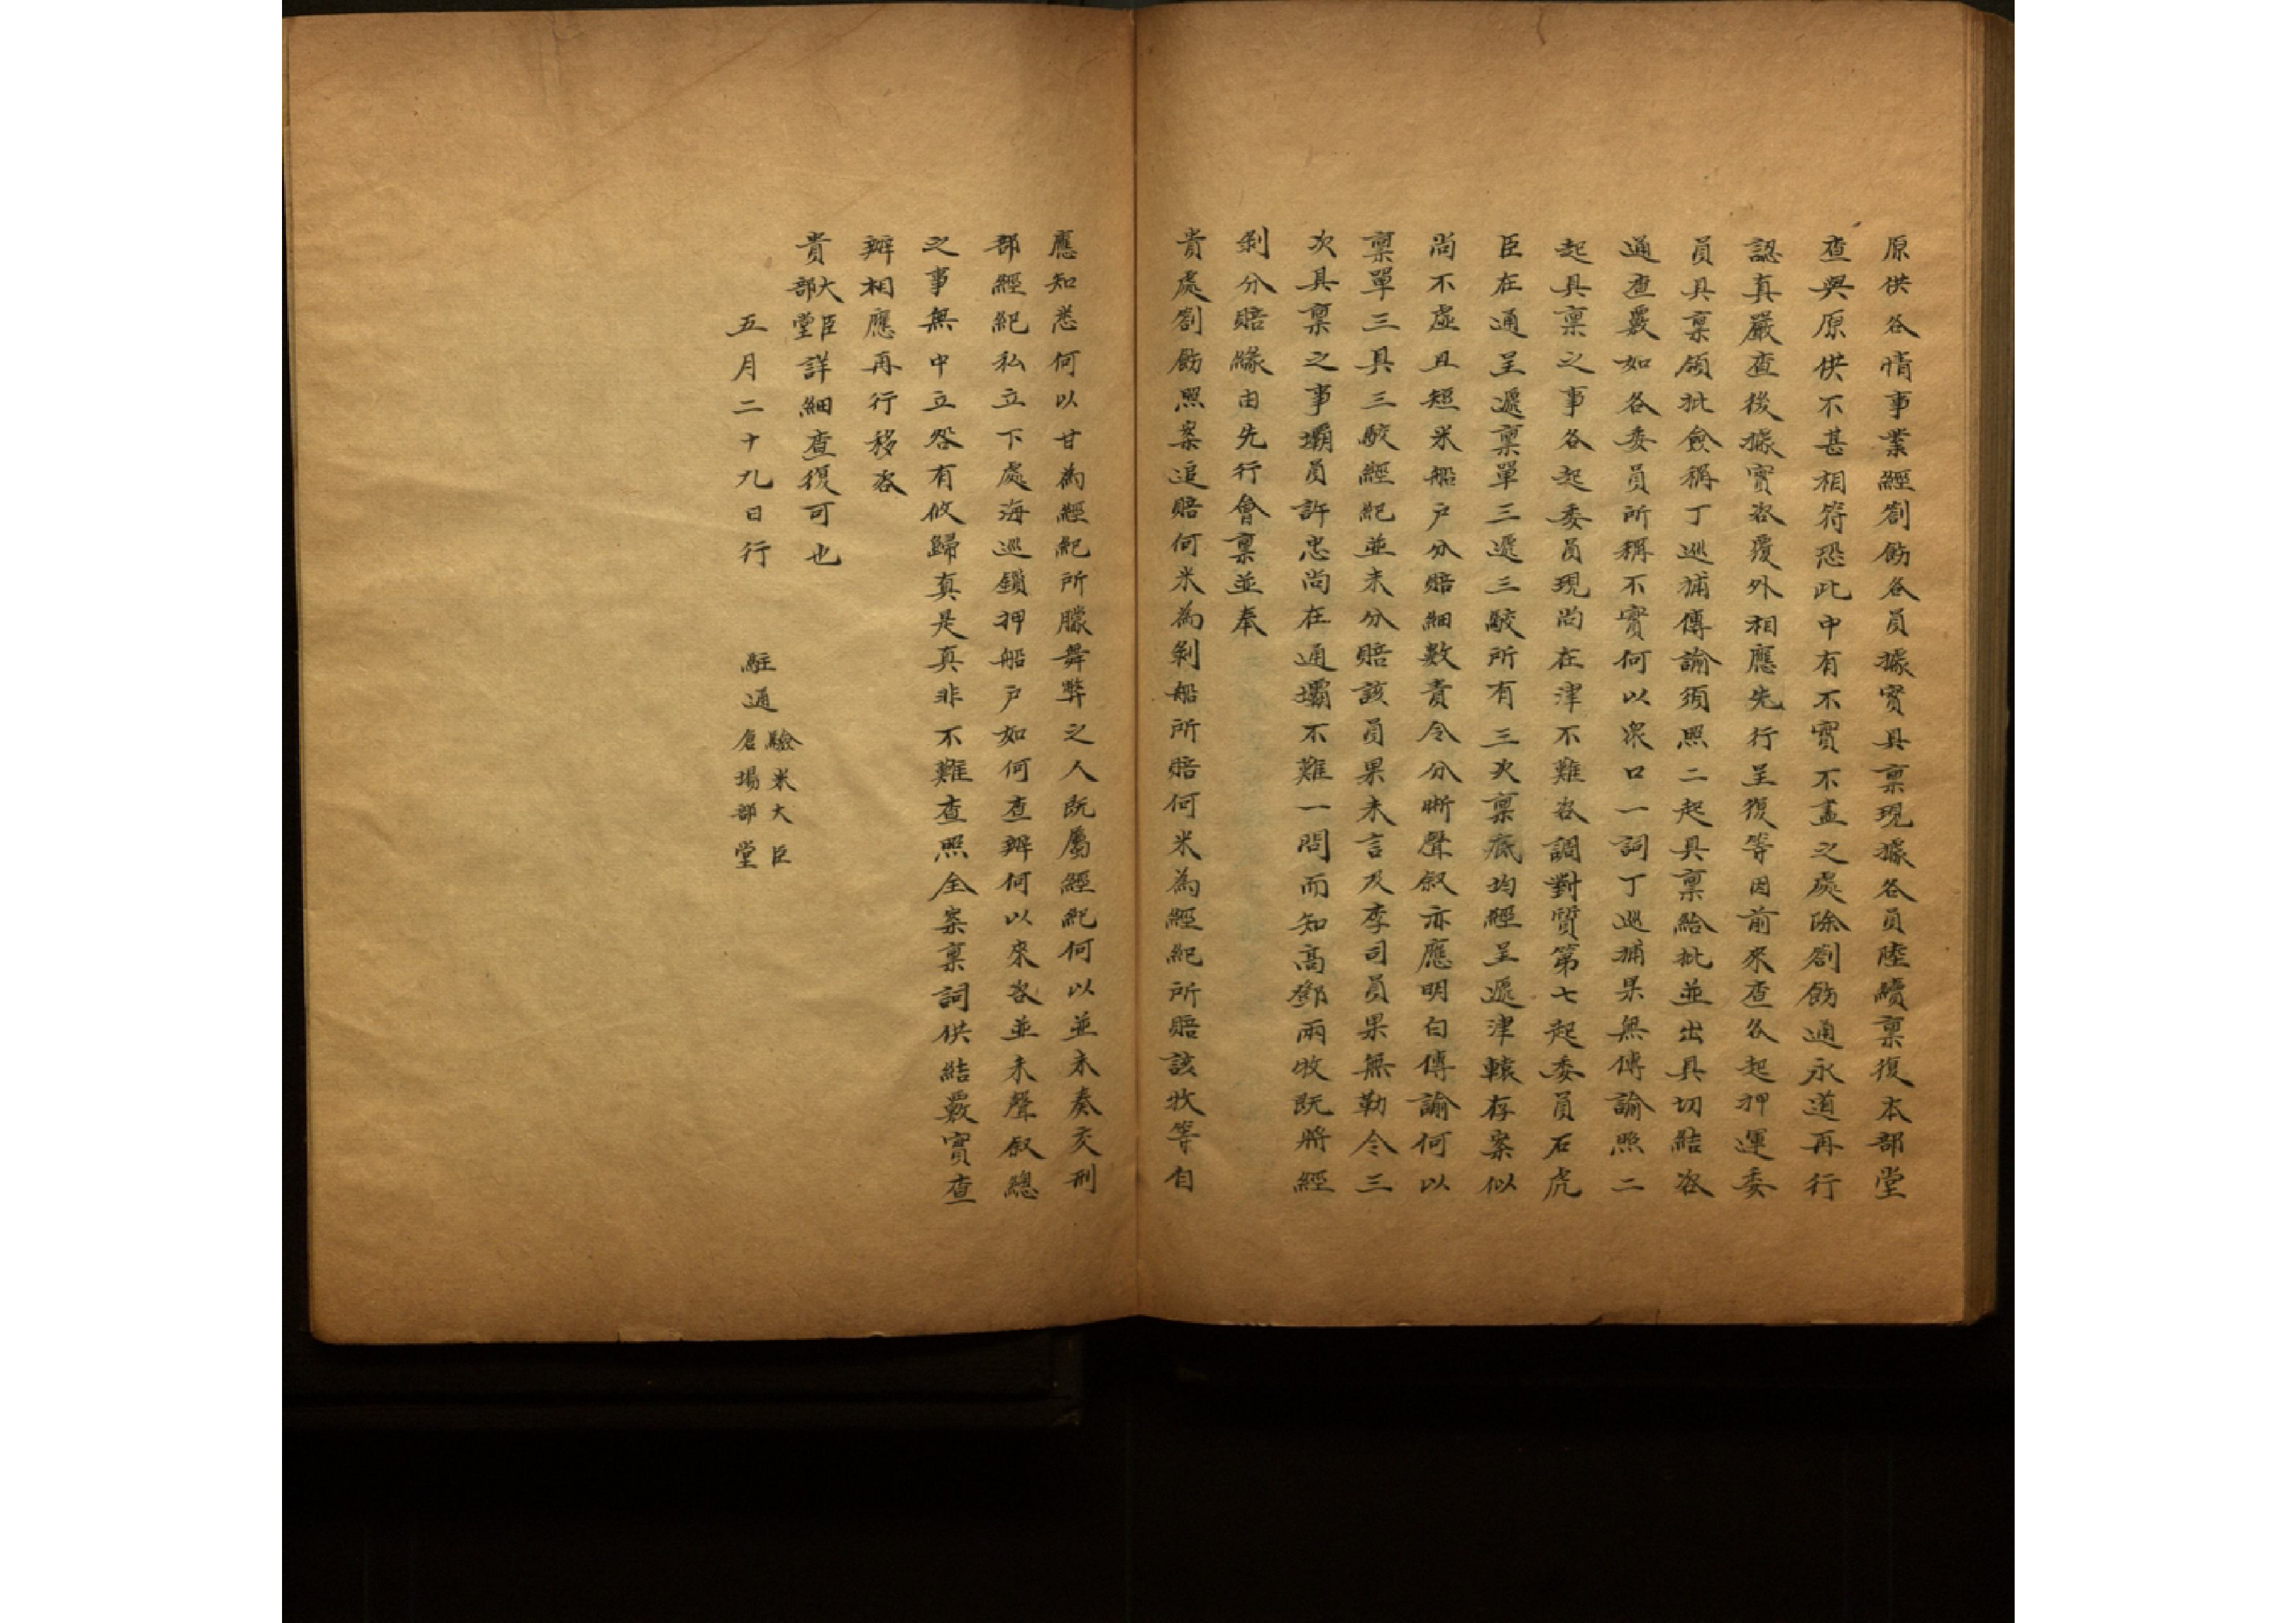 原供各情事業經劄飭各員據實具禀現據各員陸續禀復本部堂
查與原供不甚相符恐此中有不實不盡之處除劄飭通永道再行
認真嚴查後據實咨覆外相應先行呈復等因前來查各起押運委
員具禀領批僉稱丁巡捕傳諭須照二起具禀給批並出具切結咨
通查覈如各委員所稱不實何以衆口一詞丁巡捕果無傳諭照二
起具禀之事各起委員現尚在津不難咨調對質第七起委員石虎
臣在通呈遞禀單三遞三駮所有三次禀底均經呈遞津轅存案似
尚不虛且短米船户分賠細數責令分晰聲叙亦應明白傳諭何以
禀單三具三駮經紀並未分賠該員果未言及李司員果無勒令三
次具禀之事壩員許忠尚在通壩不難一問而知高鄧兩牧既將經
剝分賠緣由先行會禀並奉
貴處劄飭照案追賠何米為剝船所賠何米為經紀所賠該牧等自
應知悉何以甘為經紀所朦舞弊之人既屬經紀何以並未奏交刑
部經紀私立下處海巡鎖押船户如何查辦何以來咨並未聲叙總
之事無中立咎有攸歸真是真非不難查照全案禀詞供結覈實查
辦相應再行移咨
貴大臣部堂詳細查復可也
五月二十九日行　駐通驗米大臣倉場部堂